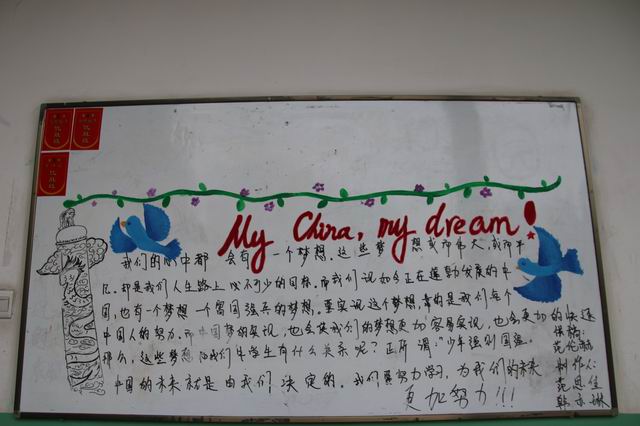 My China, my dream!
我们的心中都会有一个梦想。这些梦想或许伟大,或许平
凡,却是我们人生路上必不可少的目标。而我们说如今正在蓬勃发展的中
国,也有一个梦想一个富国强兵的梦想。要实说这个梦想,靠的是我们每个
中国人的努力。而中国梦的实说,也会使我们的梦想更加容易实说,也会更加的快速
这些梦想和我们中学生有什么关系呢?正所谓:"少年强则国强。
中国的未来就是由我们决定的。我们要努力学习,为我们的未来
更加努力!!!
制作人: